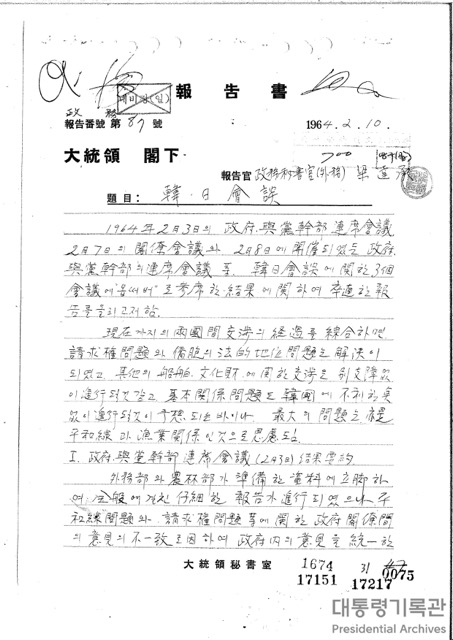 報告書
政務
報告番號 第 87 號
1964. 2. 10.
大統領 閣下
報告官 政務秘書官(外務)
題目: 韓·日會談
1964年2月3日의 政府·與黨幹部連席會議
2月7日의 關係會議와 2月8日에 開催되었든 政府
與黨幹部의 連席會議 等 韓日會談에 關한 3個
會議에 参席한 結果에 關하여 率直한 報
告를 올리고저 함.
現在까지의 兩國間交涉의 經過를 綜合하면
請求權問題와 僑胞의 法的地位問題는 解決이
되었고 其他의 船舶, 文化財에 關한 交涉은 別支障없
이 進行되겠고 基本關係問題도 韓國에 不利한 点
없이 進行되것이 予想되는바이나 最大의 問題는 亦是
平和線과 漁業關係인것으로 思慮됨
I. 政府·與黨幹部連席會議(2月3日) 結果要約
外務部와 農林部가 準備한 資料에 立脚하
여 仔細한 報告가 進行되였으나 平
和線問題와 請求權問題等에 關한 政府關係間
의 意見의 不一致로 因하여 政府內의 意見을 統一한
大統領秘書室
1674
17151
17217
0075
대통령기록관
Presidential Archives